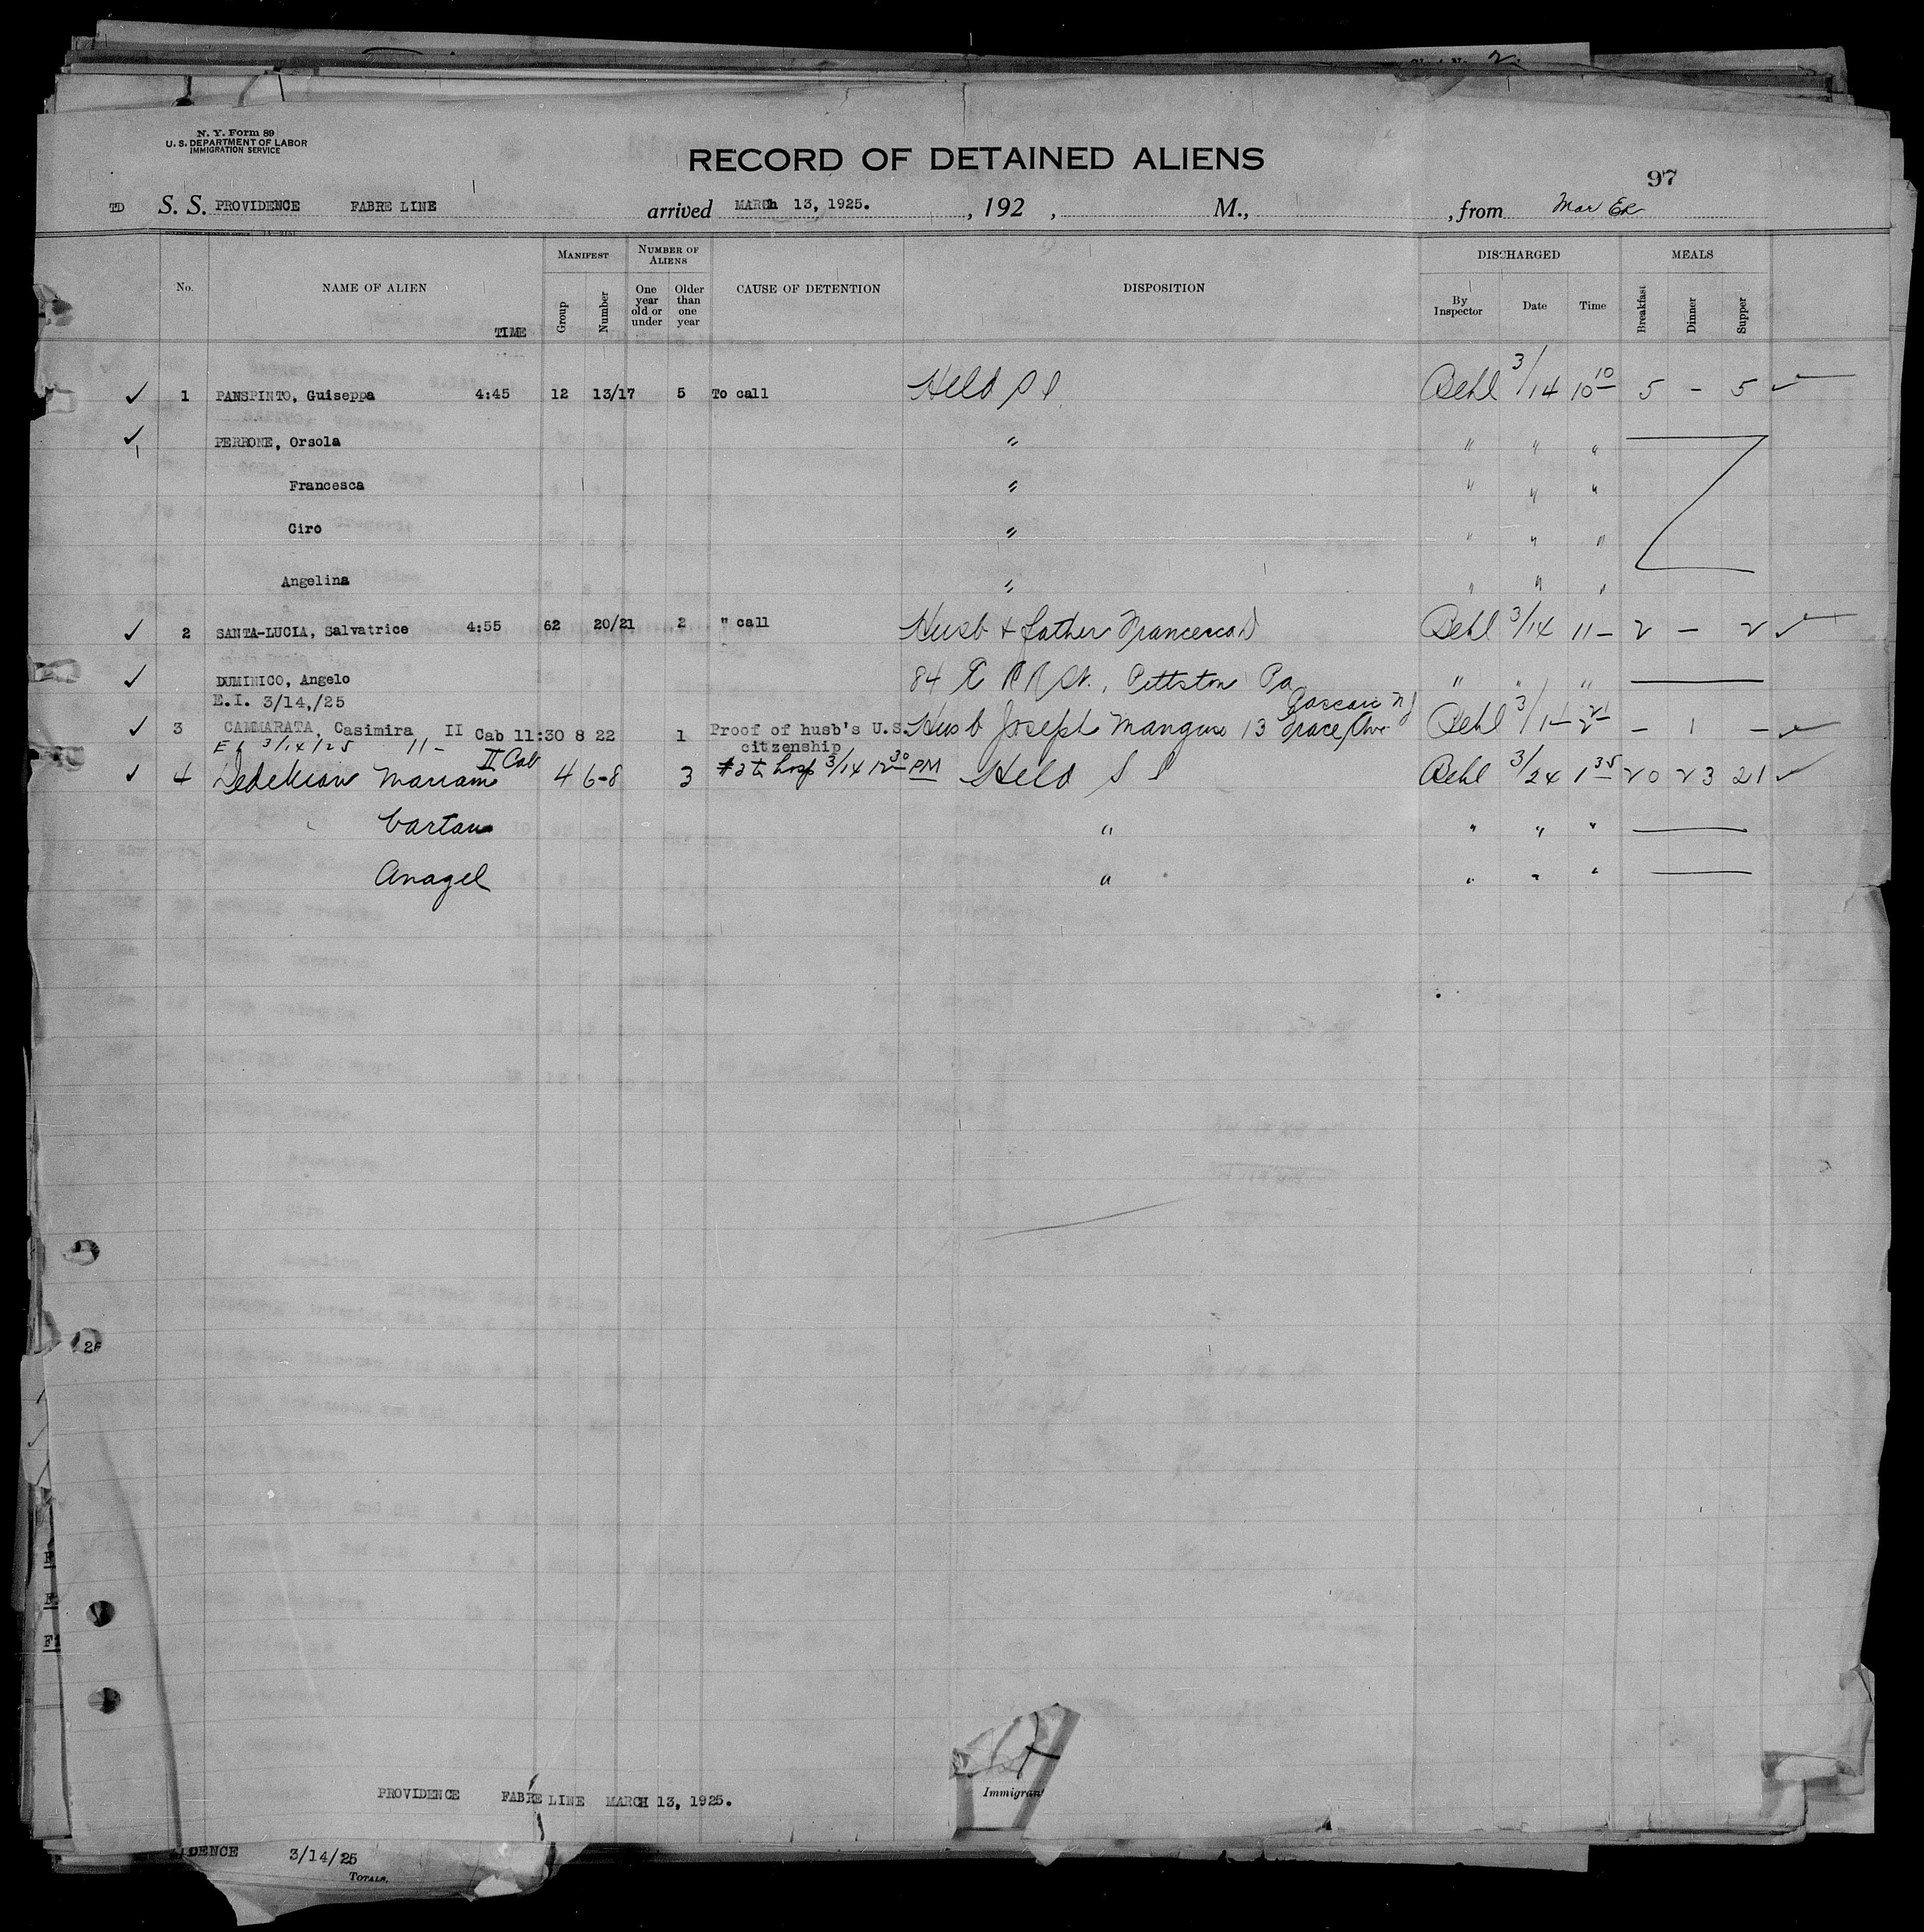 N. Y. Form 89
U. S. DEPARTMENT OF LABOR
IMMIGRATION SERVICE
RECORD OF DETAINED ALIENS
97
TD S. S. PROVIDENCE FABRE LINE arrived MARCh 13, 1925. , 192 , M., , from
No. NAME OF ALIEN TIME MANIFEST Group Number NUMBER OF ALIENS One year old or under Older than one year CAUSE OF DETENTION DISPOSITION DISCHARGED By Inspector Date Time MEALS Breakfast Dinner Supper
✓ 1 PANSPINTO, Guiseppa 4:45 12 13/17 5 To call Held Behl 3/14 10 10 5 – 5 ✓
✓ PERRONE, Orsola " " " "
Francesca " " " "
Ciro " " " "
Angelina " " " "
✓ 2 SANTA-LUCIA, Salvatrice 4:55 62 20/21 2 " call Husb + father Francesco Behl 3/14 11 – 2 – 2 ✓
✓ DUMINICO, Angelo 84 St., Pittston Pa " " "
E.I. 3/14,/25
✓ 3 CAMMARATA, Casimira II Cab 11:30 8 22 1 Proof of husb's U.S. citzenship Husb Joseph 13 Grace Ave NJ Behl – 1 – ✓
3/14/25 11 –
II Cab
✓ 4 Dedekian Mariam 4 6-8 3 hosp 3/14 12 30 PM Held Behl 3/24 1 35 20 23 21 ✓
Vartan " " " "
Anagel " " " "
26
PROVIDENCE FABRE LINE MARCH 13, 1925.
Immigran
DENCE 3/14/25
TOTALS.